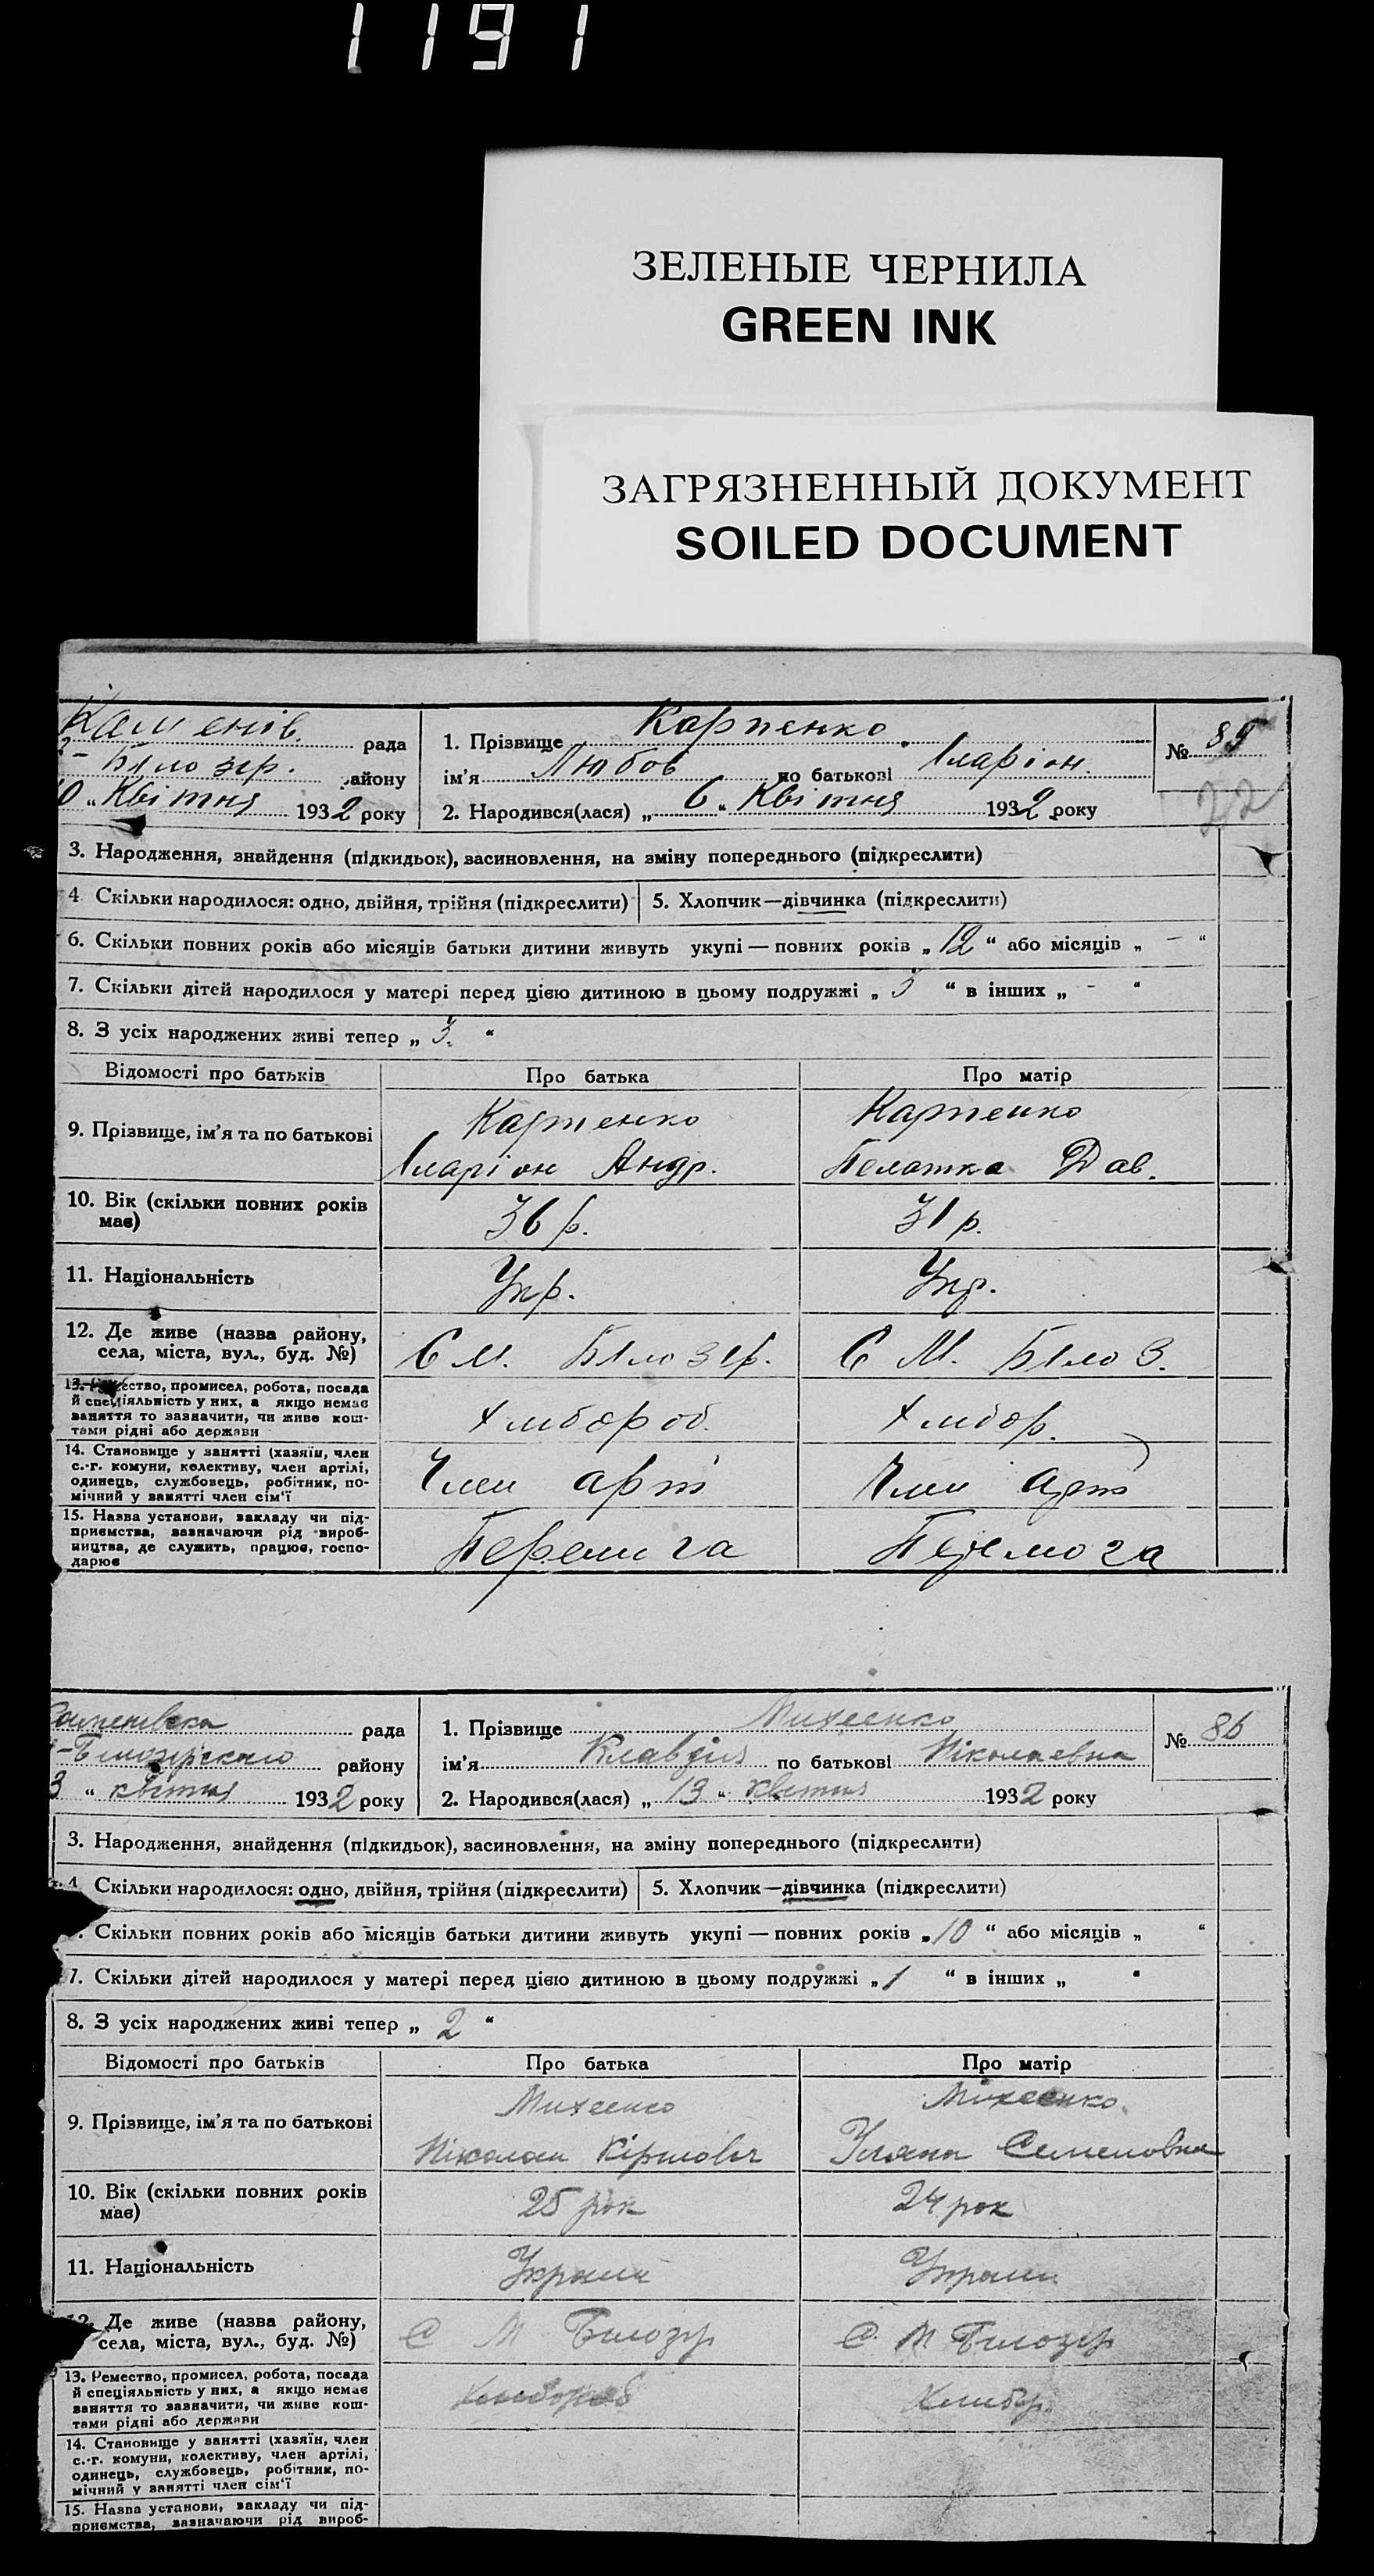 1191
ЗЕЛЕНЫЕ ЧЕРНИЛА
GREEN INK
ЗАГРЯЗНЕННЫЙ ДОКУМЕНТ
SOILED DOCUMENT
Каменів. рада
- Білозер. району
"Квітня 1932 року
1. Прізвище Карпенко
ім'я Любов по батькові Іларіон.
2. Народився(лася) „ 6 " Квітня 1932 року
№ 85
22
3. Народження, знайдення (підкидьок), засиновлення, на зміну попереднього (підкреслити)
4 Скільки народилося: одно, двійня, трійня (підкреслити) 5. Хлопчик—дівчинка (підкреслити)
6. Скільки повних років або місяців батьки дитини живуть укупі — повних років „ 12 “ або місяців „ - “
7. Скільки дітей народилося у матері перед цією дитиною в цьому подружжі „ 3 “ в інших „ - “
8. З усіх народжених живі тепер „ 3. “
Відомості про батьків Про батька Про матір
9. Прізвище, ім'я та по батькові
Карпенко Карпенко
Іларіон Андр. Пелашка Дав.
10. Вік (скільки повних років має) 36 р. 31 р.
11. Національність Укр. Укр.
12. Де живе (назва району,
села, міста, вул., буд. №) С М. Білозер. С М. Білоз.
13. Ремество, промисел, робота, посада
й спеціяльність у них, а якщо немає
заняття то зазначити, чи живе кош-
тами рідні або держави
Хлібороб. Хлібор.
14. Становище у занятті (хазяїн, член
с.-г. комуни, колективу, член артілі,
одинець, службовець, робітник, по-
мічний у занятті член сім'ї
Член арт Член арт
15. Назва установи, закладу чи під-
приємства, зазначаючи рід вироб-
ництва, де служить, працює, госпо-
дарює
Перемога Перемога
рада
-Білозерского району
" квітня 1932 року
1. Прізвище Михеенко
ім'я Клавдія по батькові Ніколаевна
2. Народився(лася) „ 13 " квітня 1932 року
№ 86
3. Народження, знайдення (підкидьок), засиновлення, на зміну попереднього (підкреслити)
4. Скільки народилося: одно, двійня, трійня (підкреслити) 5. Хлопчик—дівчинка (підкреслити)
. Скільки повних років або місяців батьки дитини живуть укупі — повних років „ 10 “ або місяців „ “
7. Скільки дітей народилося у матері перед цією дитиною в цьому подружжі „ 1 “ в інших „ “
8. З усіх народжених живі тепер „ 2 “
Відомості про батьків Про батька Про матір
9. Прізвище, ім'я та по батькові
Михеенко Михеенко
Ніколаи Уляна Семеновна
10. Вік (скільки повних років має) 25 рок 24 рок
11. Національність Украин Украин
12. Де живе (назва району,
села, міста, вул., буд. №) С М Білозер С. М Білозер
13. Ремество, промисел, робота, посада
й спеціяльність у них, а якщо немає
заняття то зазначити, чи живе кош-
тами рідні або держави
Хлибороб Хлибор.
14. Становище у занятті (хазяїн, член
с.-г. комуни, колективу, член артілі,
одинець, службовець, робітник, по-
мічний у занятті член сім'ї
15. Назва установи, закладу чи під-
приємства, зазначаючи рід вироб-